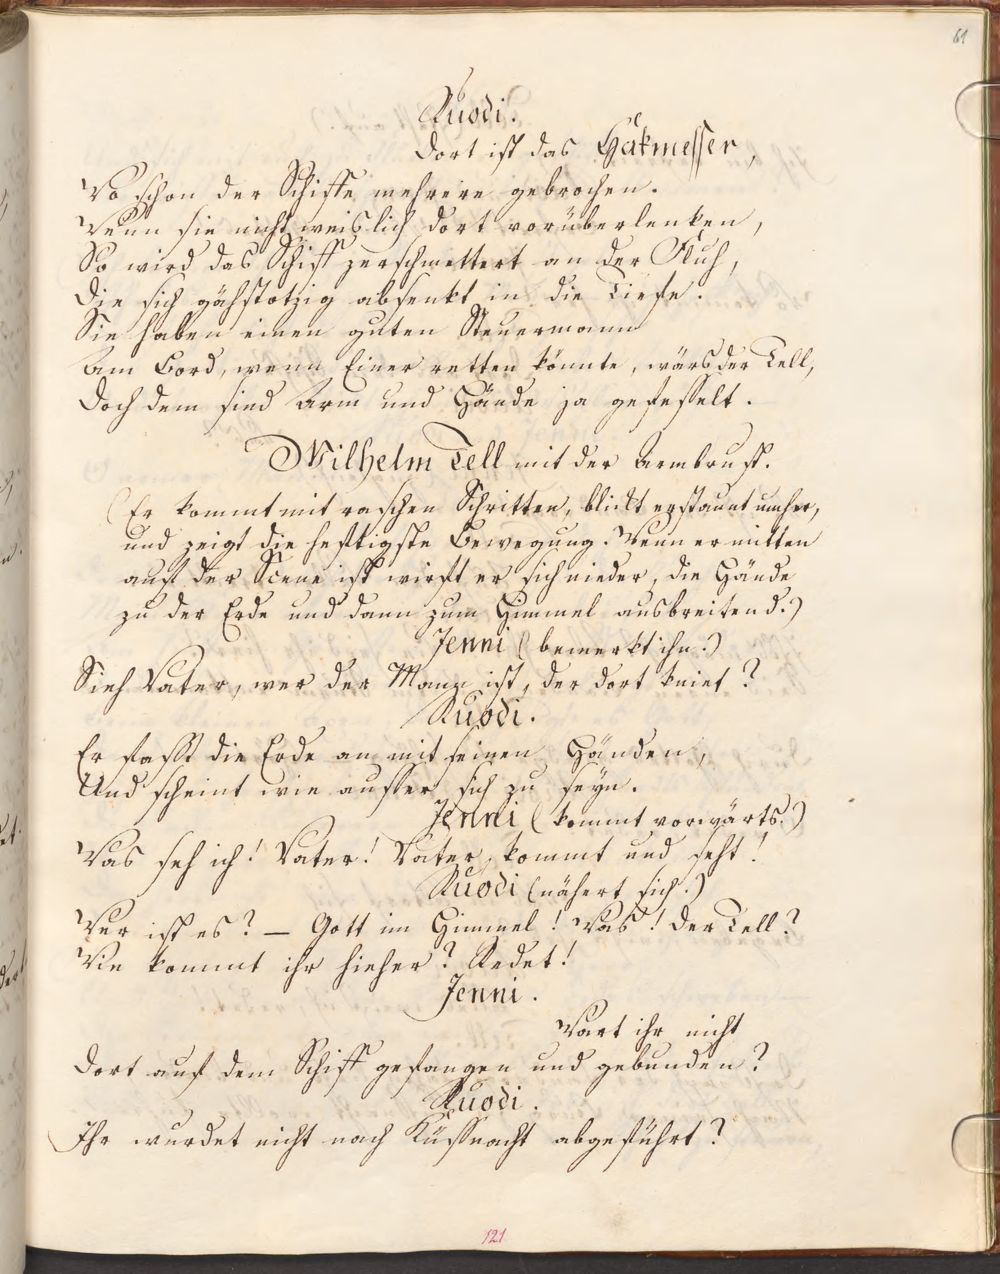 61
Ruodi.
Dort ist das Hakmesser,
Wo schon der Schiffe mehrere gebrochen.
Wenn sie nicht weislich dort vorüberlenken,
So wird das Schiff zerschmettert an der Fluh,
Die sich gähstotzig absenkt in die Tiefe.
Sie haben einen guten Steuermann
Am Bord, wenn Einer retten könnte, wärs der Tell,
Doch dem sind Arm und Hände ja gefesselt.
Wilhelm Tell mit der Armbrust.
(Er kommt mit raschen Schritten, blickt erstaunt umher,
und zeigt die heftigste Bewegung. Wenn er mitten
auf der Scene ist wirft er sich nieder, die Hände
zu der Erde und dann zum Himmel ausbreitend.)
Jenni (bemerkt ihn.)
Sieh Vater, wer der Mann ist, der dort kniet?
Ruodi.
Er fasst die Erde an mit seinen Händen,
Und scheint wie ausser sich zu seyn.
Jenni (kommt vorwärts.)
Was seh ich! Vater! Vater, kommt und seht!
Ruodi (nähert sich.)
Wer ist es? — Gott im Himmel! Was! Der Tell?
Wie kommt ihr hieher? Redet!
Jenni.
Wart ihr nicht
Dort auf dem Schiff gefangen und gebunden?
Ruodi.
Ihr wurdet nicht nach Küssnacht abgeführt?
121